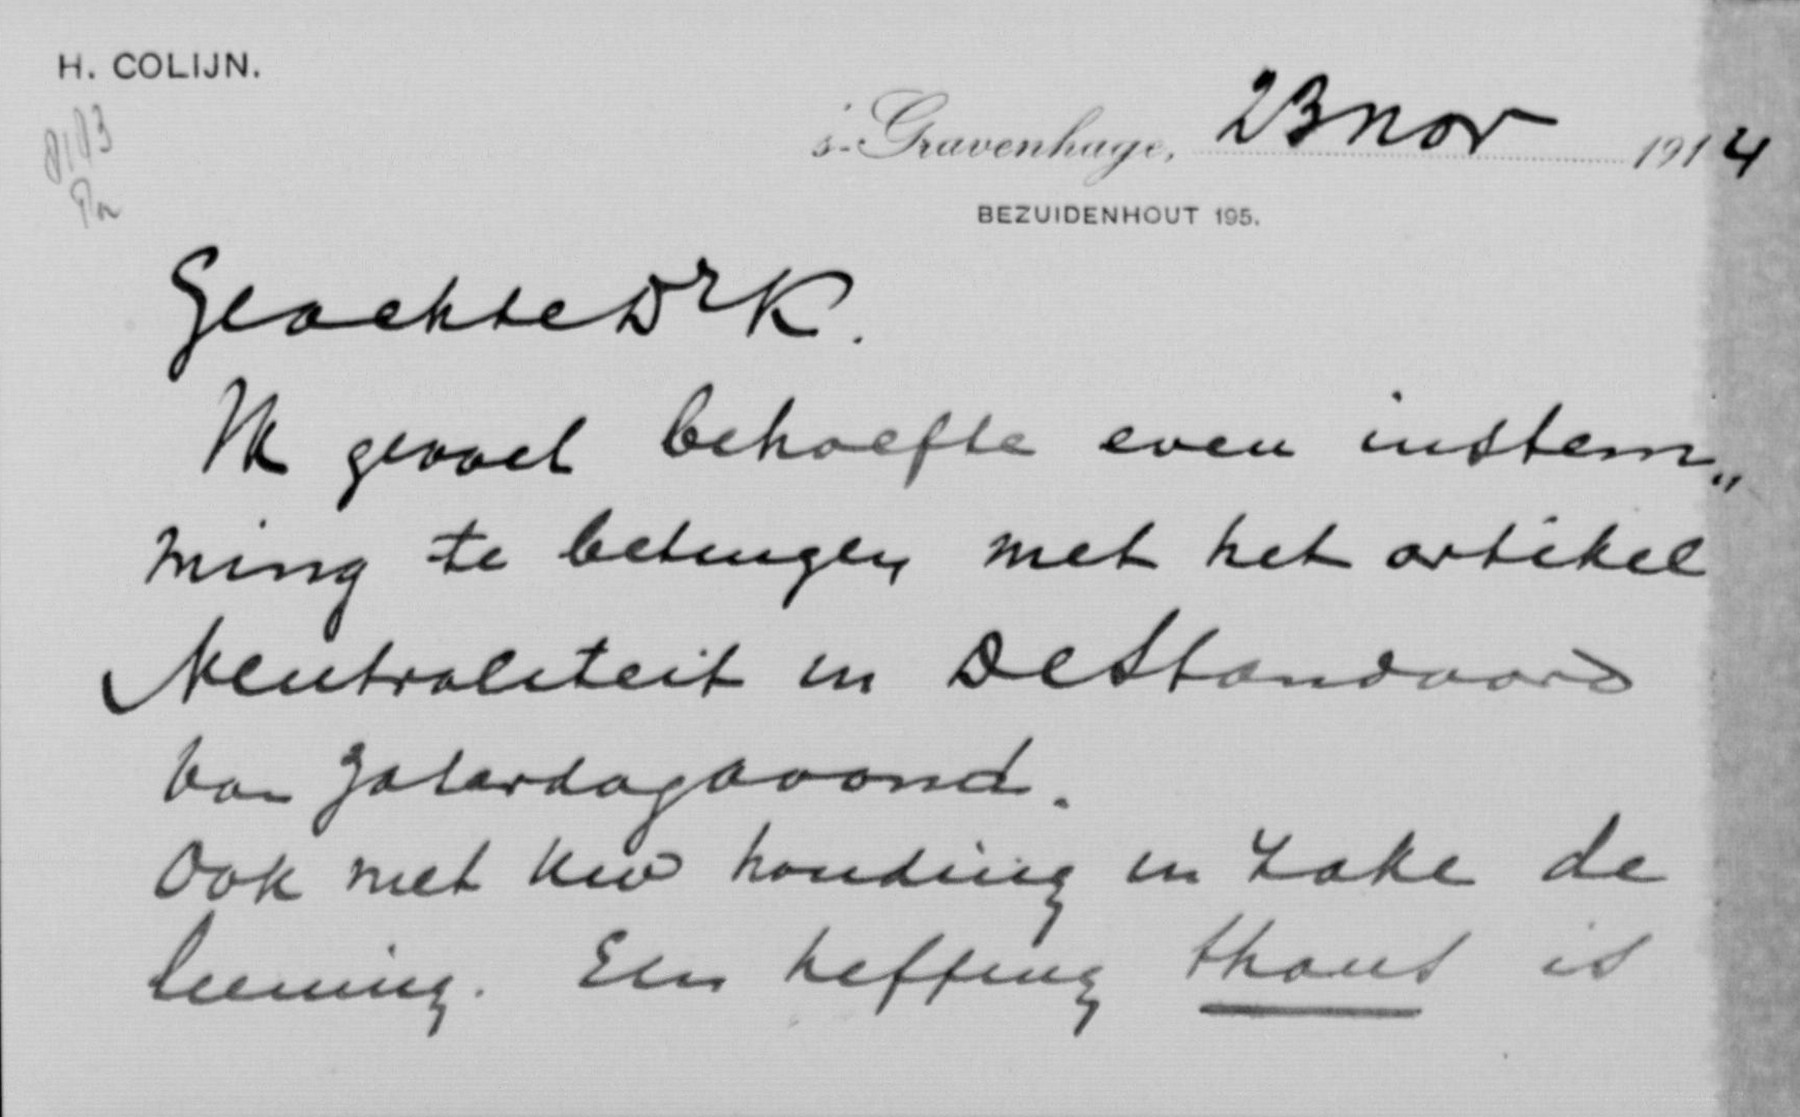 H. COLIJN.
8183
's-Gravenhage, 23 nov 1914
BEZUIDENHOUT 195.
Geachte Dr K.
Ik gevoel behoefte even instem„
ming te betuigen met het artikel
Neutraliteit in De Standaard
van Zaterdagavond.
Ook met Uw houding in zake de
leening. Een heffing thans is